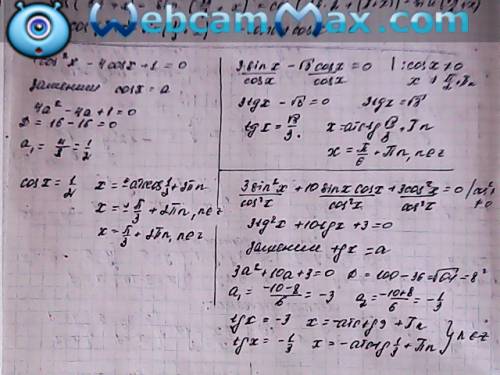 WebcamMax.com
4cos²x - 4cosx + 1 = 0
Заменим cosx = a
4a² - 4a + 1 = 0
D = 16 - 16 = 0
a₁ = 4/8 = 1/2
cosx = 1/2 x = ± arccos 1/2 + 2πn
x = ± π/3 + 2πn, n∈z
x = π/3 + 2πn, n∈z
3sinx/cosx - √3cosx/cosx = 0 | : cosx ≠ 0
x ≠ π/2 + πn
3tgx - √3 = 0 3tgx = √3
tgx = √3/3 x = arctg √3/3 + πn
x = π/6 + πn, n∈z
3sin²x/cos²x + 10sinxcosx/cos²x + 3cos²x/cos²x = 0 / cos² ≠ 0
3tg²x + 10tgx + 3 = 0
Заменим tgx = a
3a² + 10a + 3 = 0 D = 100 - 36 = √64 = 8²
a₁ = -10-8/6 = -3 a₂ = -10+8/6 = -1/3
tgx = -3 x = -arctg3 + πn
tgx = -1/3 x = -arctg 1/3 + πn } n∈z